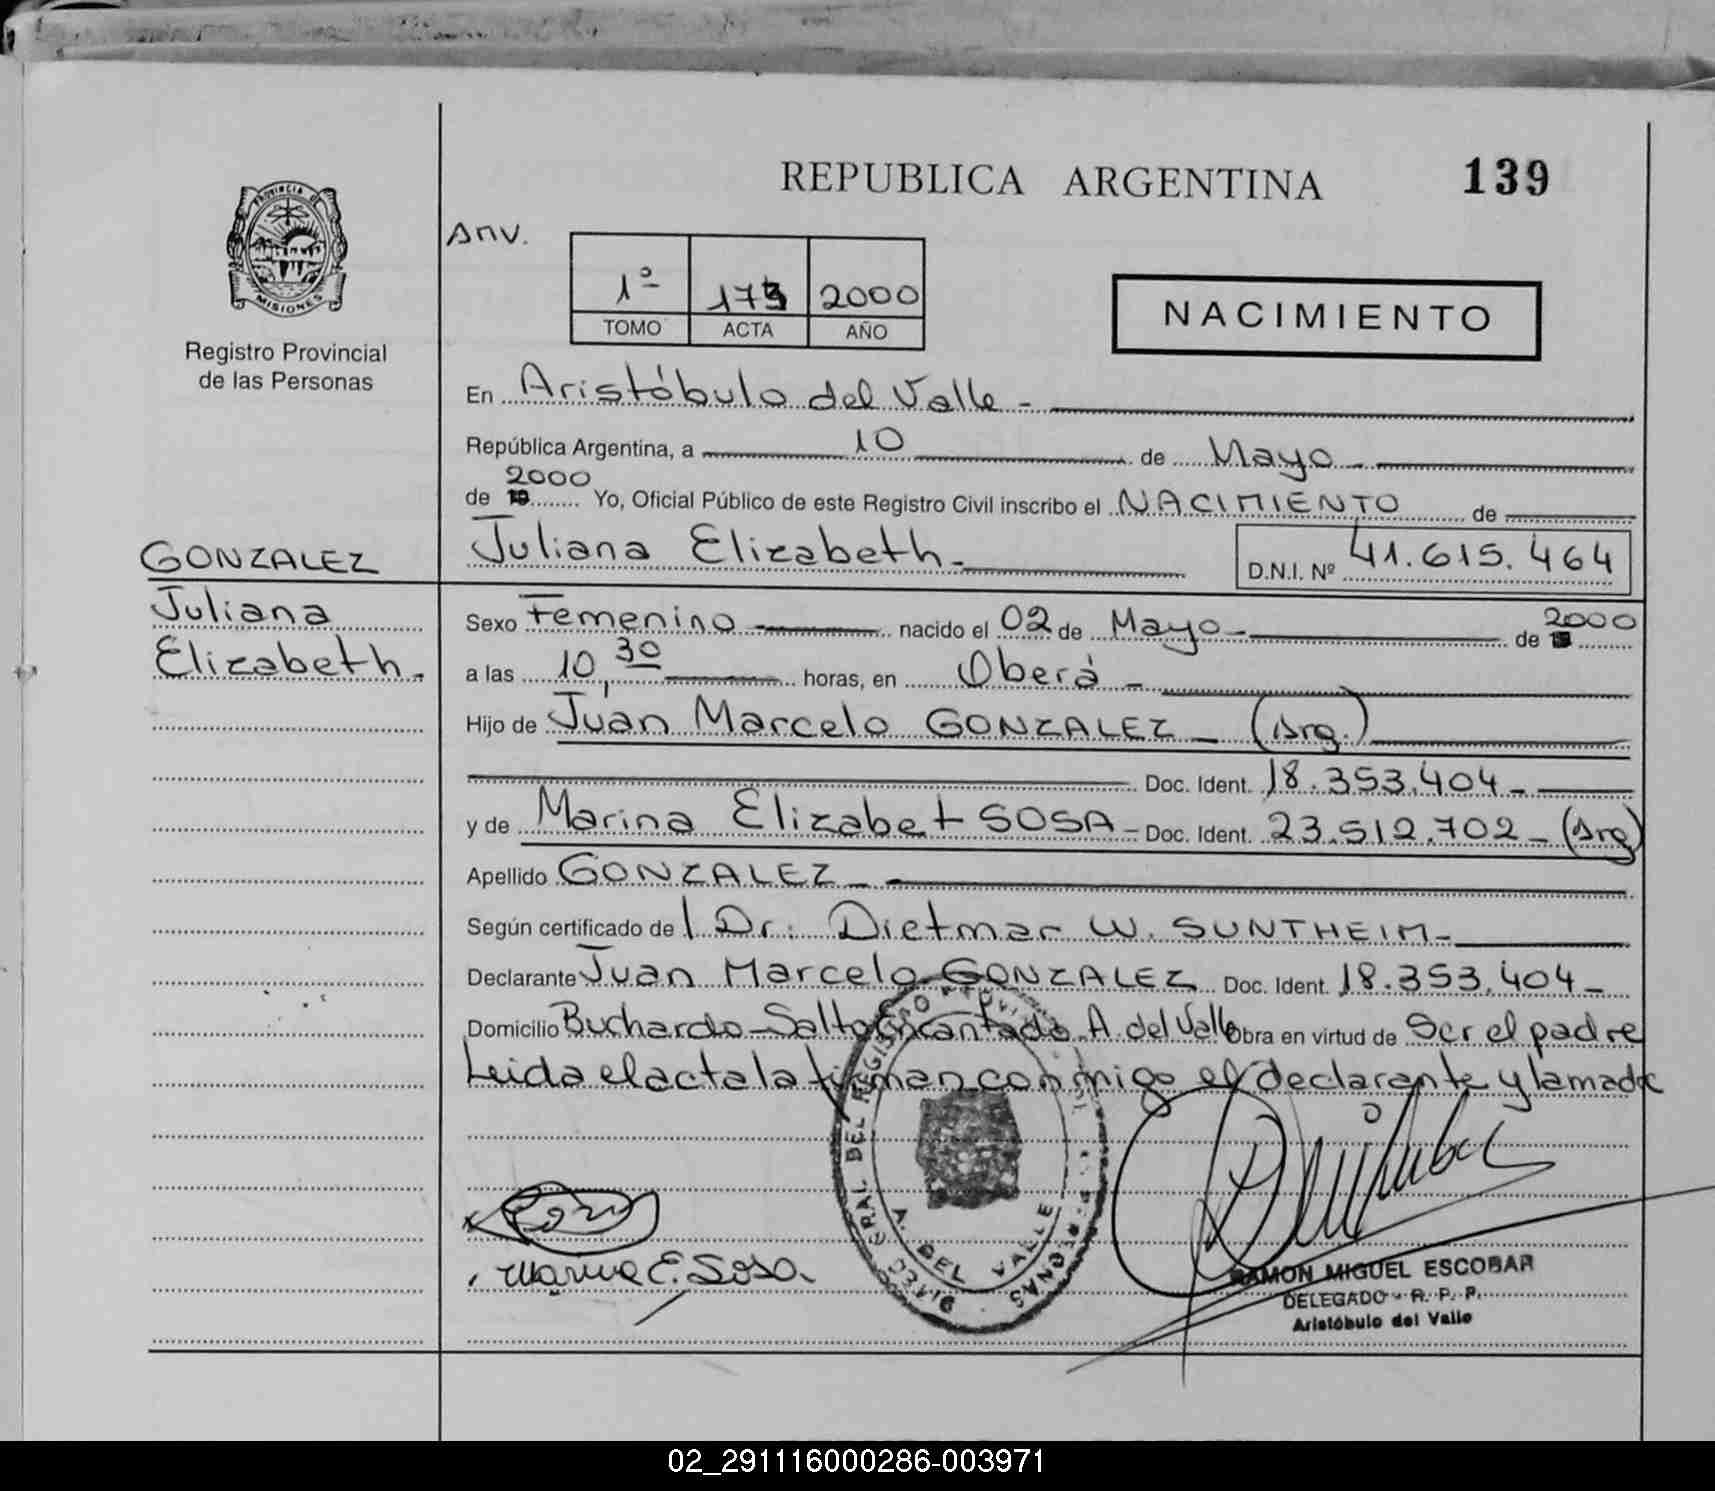 REPUBLICA ARGENTINA 139
PROVINCIA DE
MISIONES
Registro Provincial
de las Personas
Anv.
1º 2000
TOMO ACTA AÑO
NACIMIENTO
En Aristóbulo del Valle -
República Argentina, a 10 de Mayo -
2000
de 19 Yo, Oficial Público de este Registro Civil inscribo el NACIMIENTO de
GONZALEZ
Juliana
Elizabeth.
Juliana Elizabeth - D.N.I. Nº 41.615.464
Sexo Femenino nacido el 02 de Mayo - de 2000
a las 10,30 horas, en Oberá -
Hijo de Juan Marcelo GONZALEZ - (Arg.)
Doc. Ident. 18.353.404 -
y de Marina Elizabet SOSA - Doc. Ident. 23.512.702 - (Arg)
Apellido GONZALEZ -
Según certificado de l Dr. Dietmar W. SUNTHEIM -
Declarante Juan Marcelo GONZALEZ Doc. Ident. 18.353.404 -
Domicilio Buchardo - Salto Encantado. A. del Valle Obra en virtud de Ser el padre
Leida el acta la firman conmigo el declarante y la madre
A. DEL VALLE
Marina E. Sosa.
RAMON MIGUEL ESCOBAR
DELEGADO - R. P. P.
Aristóbulo del Valle
02_291116000286-003971